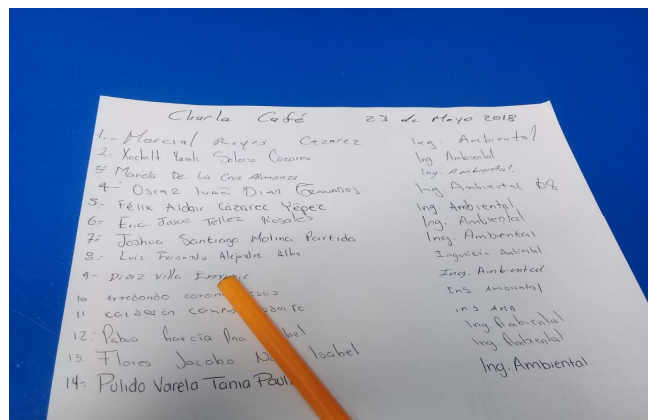 Charla Café 23 de Mayo 2018
1.- Marcial Reyes Cazarez Ing. Ambiental
2. Xochitl Yareli Solorio Cázares Ing Ambiental
3.- Mariela De La Cruz Almanza Ing. Ambiental.
4.- Oscar Ivan Diaz Granados Ing Ambiental
5.- Félix Aldair Cázarez Yépez Ing Ambiental
6.- Eric Josue Tellez Rosales Ing. Ambiental
7.- Joshua Santiago Molina Partida Ing. Ambiental
8.- Luis Fernando Alejandre Alba Ingenieria Ambiental
9- Diaz Villa Ing. Ambiental
10 Arredondo Ing Ambiental
11 calderon ing Amb
12.- Pahua García Ana Ing Ambiental
13. Flores Jacobo Isabel Ing Ambiental
14.- Pulido Varela Tania Ing. Ambiental